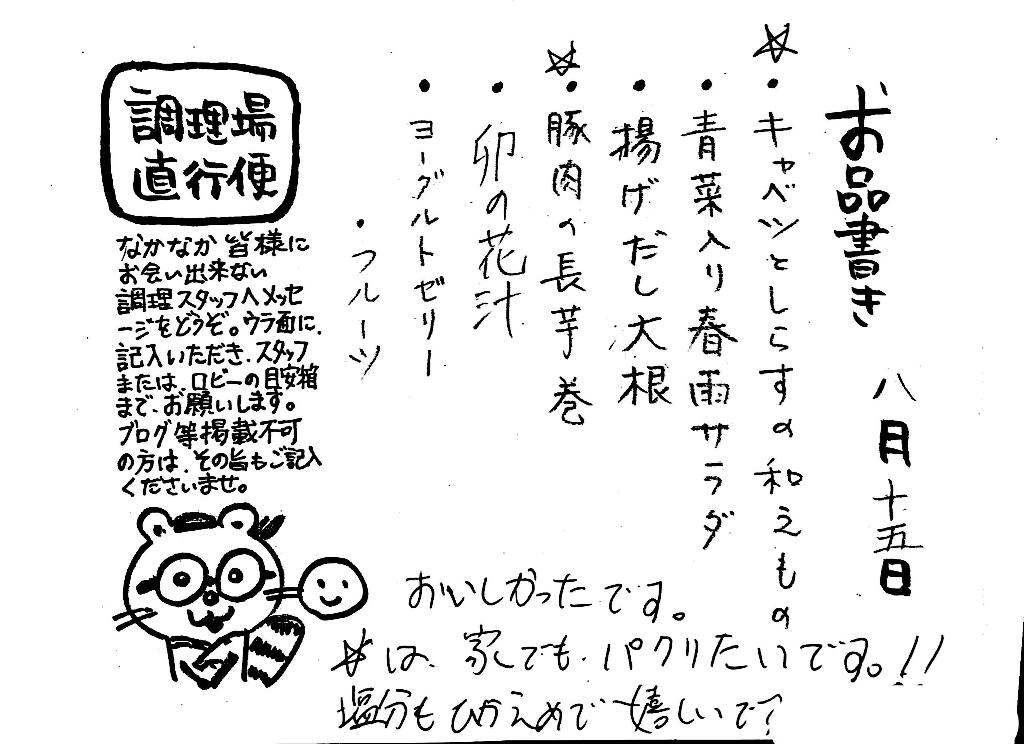 お品書き 八月十五日
☆・キャベツとしらすの和えもの
・青菜入り春雨サラダ
・揚げだし大根
☆・豚肉の長芋巻
・卯の花汁
・ヨーグルトゼリー
・フルーツ
調理場
直行便
なかなか皆様に
お会い出来ない
調理スタッフへメッセ
ージをどうぞ。ウラ面に、
記入いただき、スタッフ
または、ロビーの目安箱
まで、お願いします。
ブログ等掲載不可
の方は、その旨もご記入
くださいませ。
おいしかったです。
☆は、家でも、パクリたいです。!!
塩分もひかえめで嬉しいで